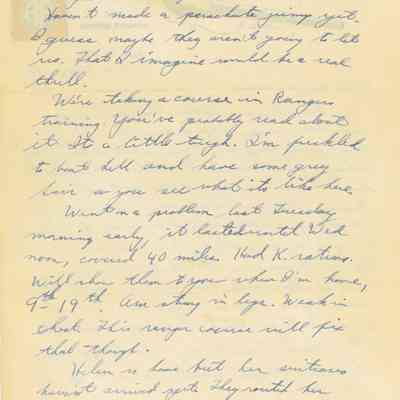 Haven't made a parachute jump yet.
I guess maybe they aren't going to let
us. That I imagine would be a real
thrill.
We're taking a course in Rangers
training You've probably read about
it. It a little tough. I'm freckled
to beat hell and have some grey
hair so you see what its like here.
Went on a problem last Tuesday
morning early, it lasted until Wed
noon, covered 40 miles. Had K. rations.
Will show them to you when I'm home,
9th - 19th. Am strong in legs. Weak in
chest. This ranger course will fix
that though.
Helen is home but her suitcases
haven't arrived yet. They routed her